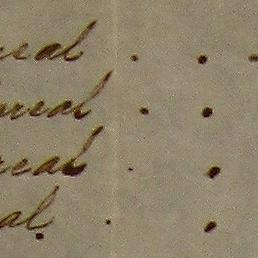 real . . .
oreal . .
real . .
al . .